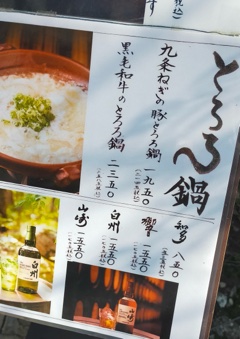 とろろ鍋
九条ねぎの豚とろろ鍋
一九五〇
黒毛和牛のとろろ鍋
二三五〇
知多
八五〇
響
一五五〇
白州
一五五〇
山崎
一五五〇
白州
山崎